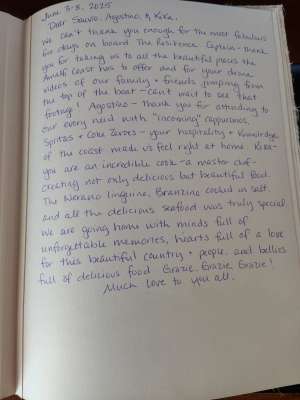 June 5-8, 2025
Dear Salvio, Agostino, & Kika.
We can't thank you enough for the most fabulous
days on board The Residence. Captain - thank
you for taking us to all the beautiful places the
Amalfi Coast has to offer and for your drone
videos of our family + friends jumping from
the top of the boat - can't wait to see that
footage! Agostino - thank you for attending to
our every need with "incoming" cappuccinos,
Spritzs + Coke Zeroes - your hospitality + knowledge
of the coast made us feel right at home. Kika -
you are an incredible cook - a master chef -
creating not only delicious but beautiful food.
The Nerano linguine, Branzino cooked in salt,
and all the delicious seafood was truly special.
We are going home with minds full of
unforgettable memories, hearts full of a love
for this beautiful country + people, and bellies
full of delicious food. Grazie, Grazie, Grazie!
Much love to you all,